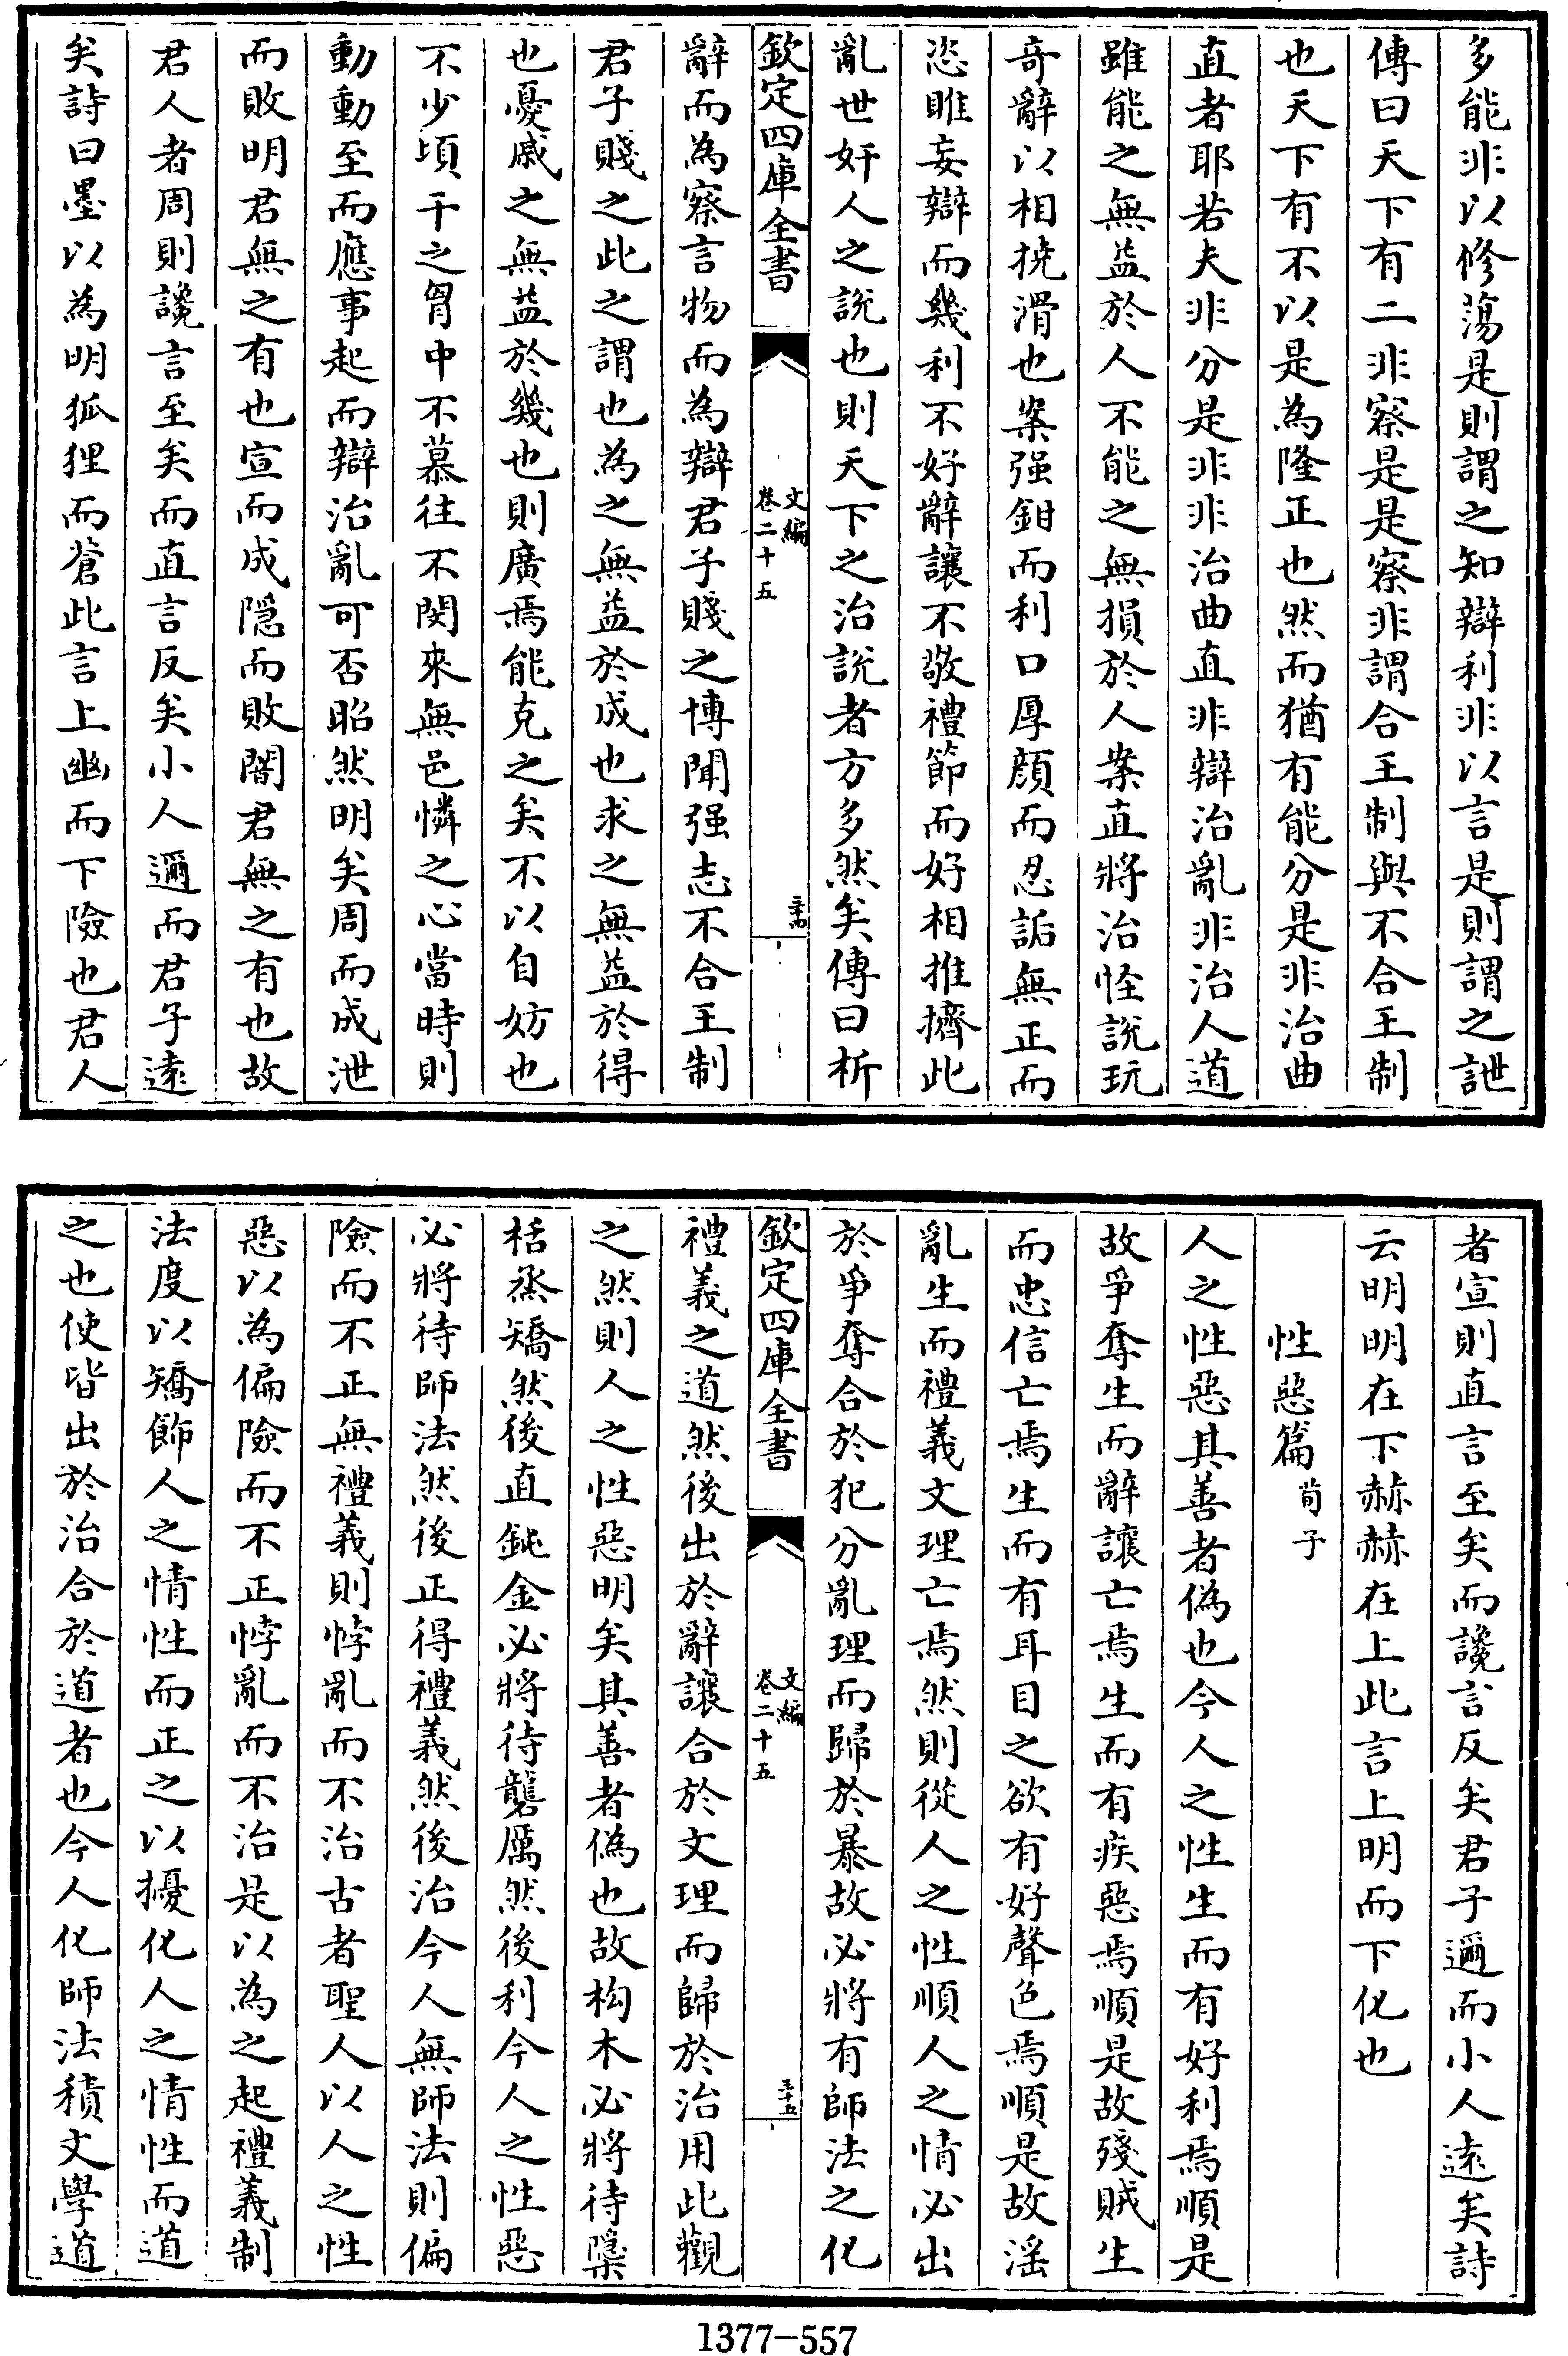 多能非以修蕩是則謂之知辯利非以言是則謂之詍
傳曰天下有二非察是是察非謂合王制與不合王制
也天下有不以是為隆正也然而猶有能分是非治曲
直者耶若夫非分是非非治曲直非辯治亂非治人道
雖能之無益於人不能之無損於人案直將治怪說玩
奇辭以相撓滑也案强鉗而利口厚顏而忍詬無正而
恣睢妄辯而幾利不好辭讓不敬禮節而好相推擠此
亂世奸人之說也則天下之治說者方多然矣傳曰析
欽定四庫全書
文編
卷二十五
三十四
辭而為察言物而為辯君子賤之博聞强志不合王制
君子賤之此之謂也為之無益於成也求之無益於得
也憂戚之無益於幾也則廣焉能克之矣不以自妨也
不少頃干之胷中不慕往不閔來無邑憐之心當時則
動動至而應事起而辯治亂可否昭然明矣周而成泄
而敗明君無之有也宣而成隱而敗闇君無之有也故
君人者周則讒言至矣而直言反矣小人邇而君子遠
矣詩曰墨以為明狐狸而蒼此言上幽而下險也君人
者宣則直言至矣而讒言反矣君子邇而小人遠矣詩
云明明在下赫赫在上此言上明而下化也
性惡篇 荀子
人之性惡其善者偽也今人之性生而有好利焉順是
故爭奪生而辭讓亡焉生而有疾惡焉順是故殘賊生
而忠信亡焉生而有耳目之欲有好聲色焉順是故滛
亂生而禮義文理亡焉然則從人之性順人之情必出
於爭奪合於犯分亂理而歸於暴故必將有師法之化
欽定四庫全書
文編
卷二十五
三十五
禮義之道然後出於辭讓合於文理而歸於治用此觀
之然則人之性惡明矣其善者偽也故枸木必將待檃
栝烝矯然後直鈍金必將待礱厲然後利今人之性惡
必將待師法然後正得禮義然後治今人無師法則偏
險而不正無禮義則悖亂而不治古者聖人以人之性
惡以為偏險而不正悖亂而不治是以為之起禮義制
法度以矯飾人之情性而正之以擾化人之情性而道
之也使皆出於治合於道者也今人化師法積文學道
1377-557